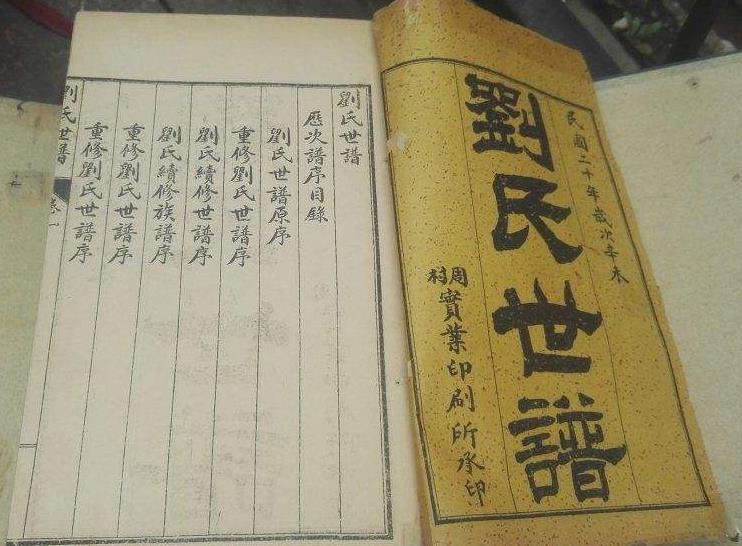 民國二十年歲次辛未
劉氏世譜
周村實業印刷所承印
劉氏世譜
歷次譜序目錄
劉氏世譜原序
重修劉氏世譜序
劉氏續修世譜序
劉氏續修族譜序
重修劉氏世譜序
重修劉氏世譜序
劉氏世譜
卷一